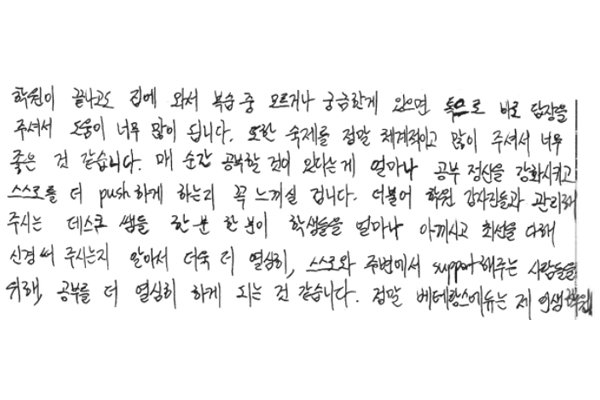 학원이 끝나고도 집에 와서 복습 중 모르거나 궁금한게 있으면 톡으로 바로 답장을
주셔서 도움이 너무 많이 됩니다. 또한 숙제를 정말 체계적이고 많이 주셔서 너무
좋은 것 같습니다. 매 순간 공부할 것이 있다는게 얼마나 공부 정신을 강화시키고
스스로를 더 push하게 하는지 꼭 느끼실 겁니다. 더불어 학원 강사진들과 관리해
주시는 데스크 쌤들 한분 한분이 학생들을 얼마나 아끼시고 최선을 다해
신경써 주시는지 알아서 더욱 더 열심히, 스스로와 주변에서 support해주는 사람들을
위해, 공부를 더 열심히 하게 되는 것 같습니다. 정말 베테랑스에듀는 제 인생학원